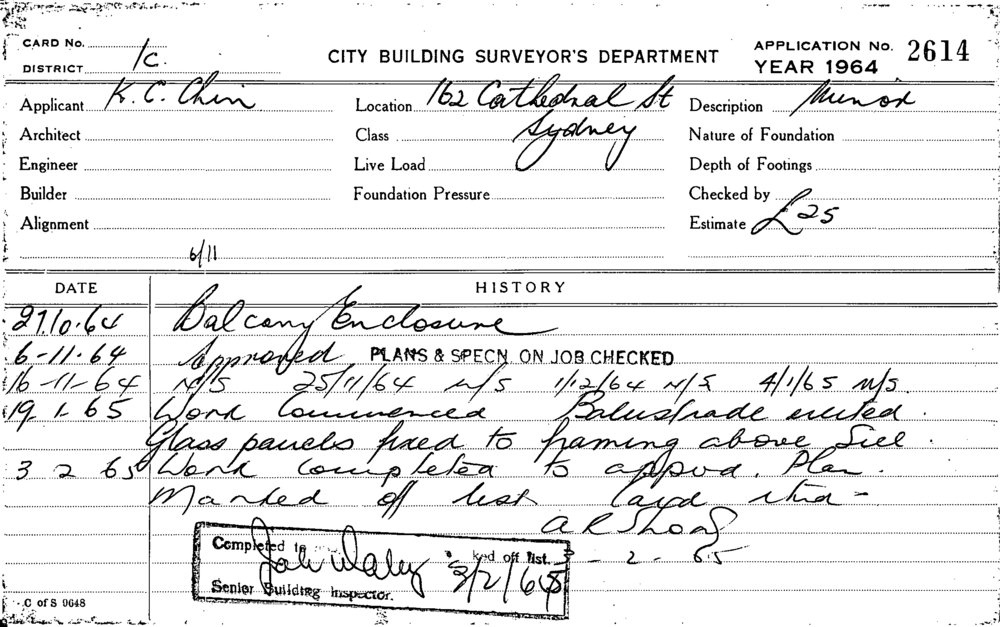 CARD No.
DISTRICT 1C.
CITY BUILDING SURVEYOR'S DEPARTMENT
APPLICATION No. 2614
YEAR 1964
Applicant K. C. Chin Location 162 Cathedral St Description Minor
Architect Class Sydney Nature of Foundation
Engineer Live Load Depth of Footings
Builder Foundation Pressure Checked by
Alignment Estimate £25
6/11
DATE HISTORY
27.10.64 Balcony Enclosure
6-11-64 Approved PLANS & SPECN ON JOB CHECKED
16-11-64 N/S 25/11/64 N/S 1/12/64 N/S 4/1/65 N/S.
19.1.65 Work Commenced Balustrade erected.
Glass panels fixed to framing above Sill.
3 2 65 Work completed to appvd. Plan.
Marked off list Card
- 2 - 65
Completed to ked off list.
3/2/65
Senior Building Inspector.
C of S 9648